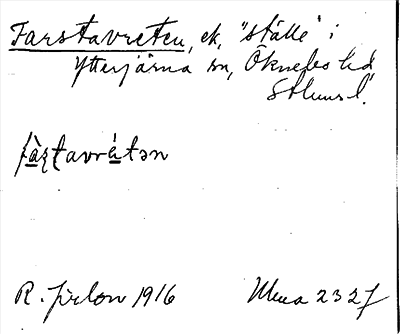 Farstavreten, ek, "ställe" i
Ytterjärna sn, Öknebo hd,
Sthms l.
fàʂtavrètən
R. Jirlow 1916
232 7